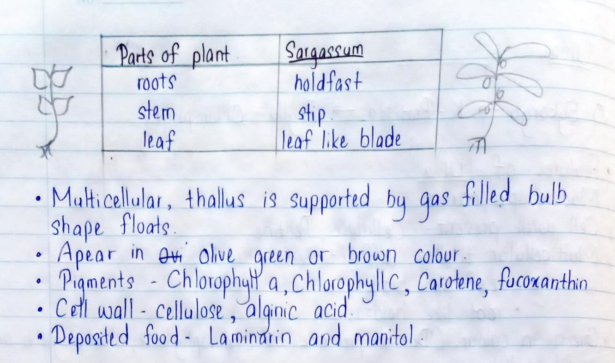 Parts of plant Sargassum
roots holdfast
stem stip.
leaf leaf like blade
• Multicellular, thallus is supported by gas filled bulb
shape floats.
• Apear in olive green or brown colour.
• Pigments - Chlorophyll a, Chlorophyll c, Carotene, fucoxanthin
• Cell wall - cellulose, alginic acid.
• Deposited food - Laminarin and manitol.